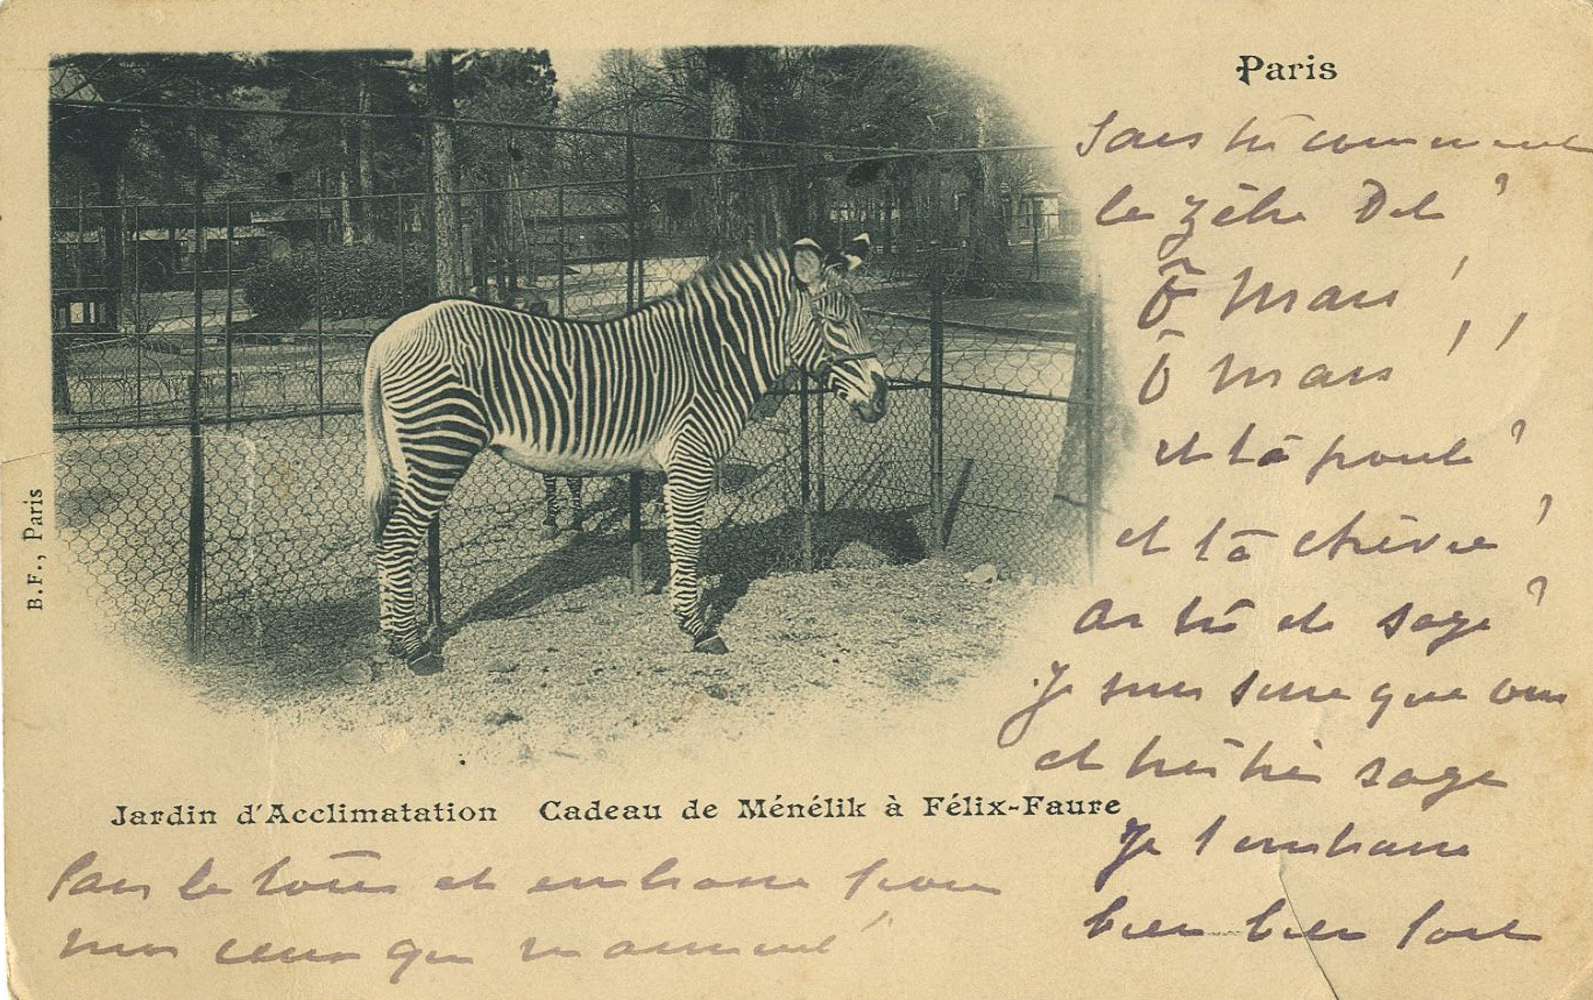 Paris
Sais tu comment
le zèbre
Ô mais !
Ô mais ! !
et ta poule ?
et ta chèvre ?
As tu été sage ?
Je suis sure que oui
et très très sage
Je t'embrasse
bien bien fort
B.F., Paris
Jardin d'Acclimatation Cadeau de Ménélik à Félix-Faure
Fais le tour et embrasse pour
moi ceux qui m'aiment !